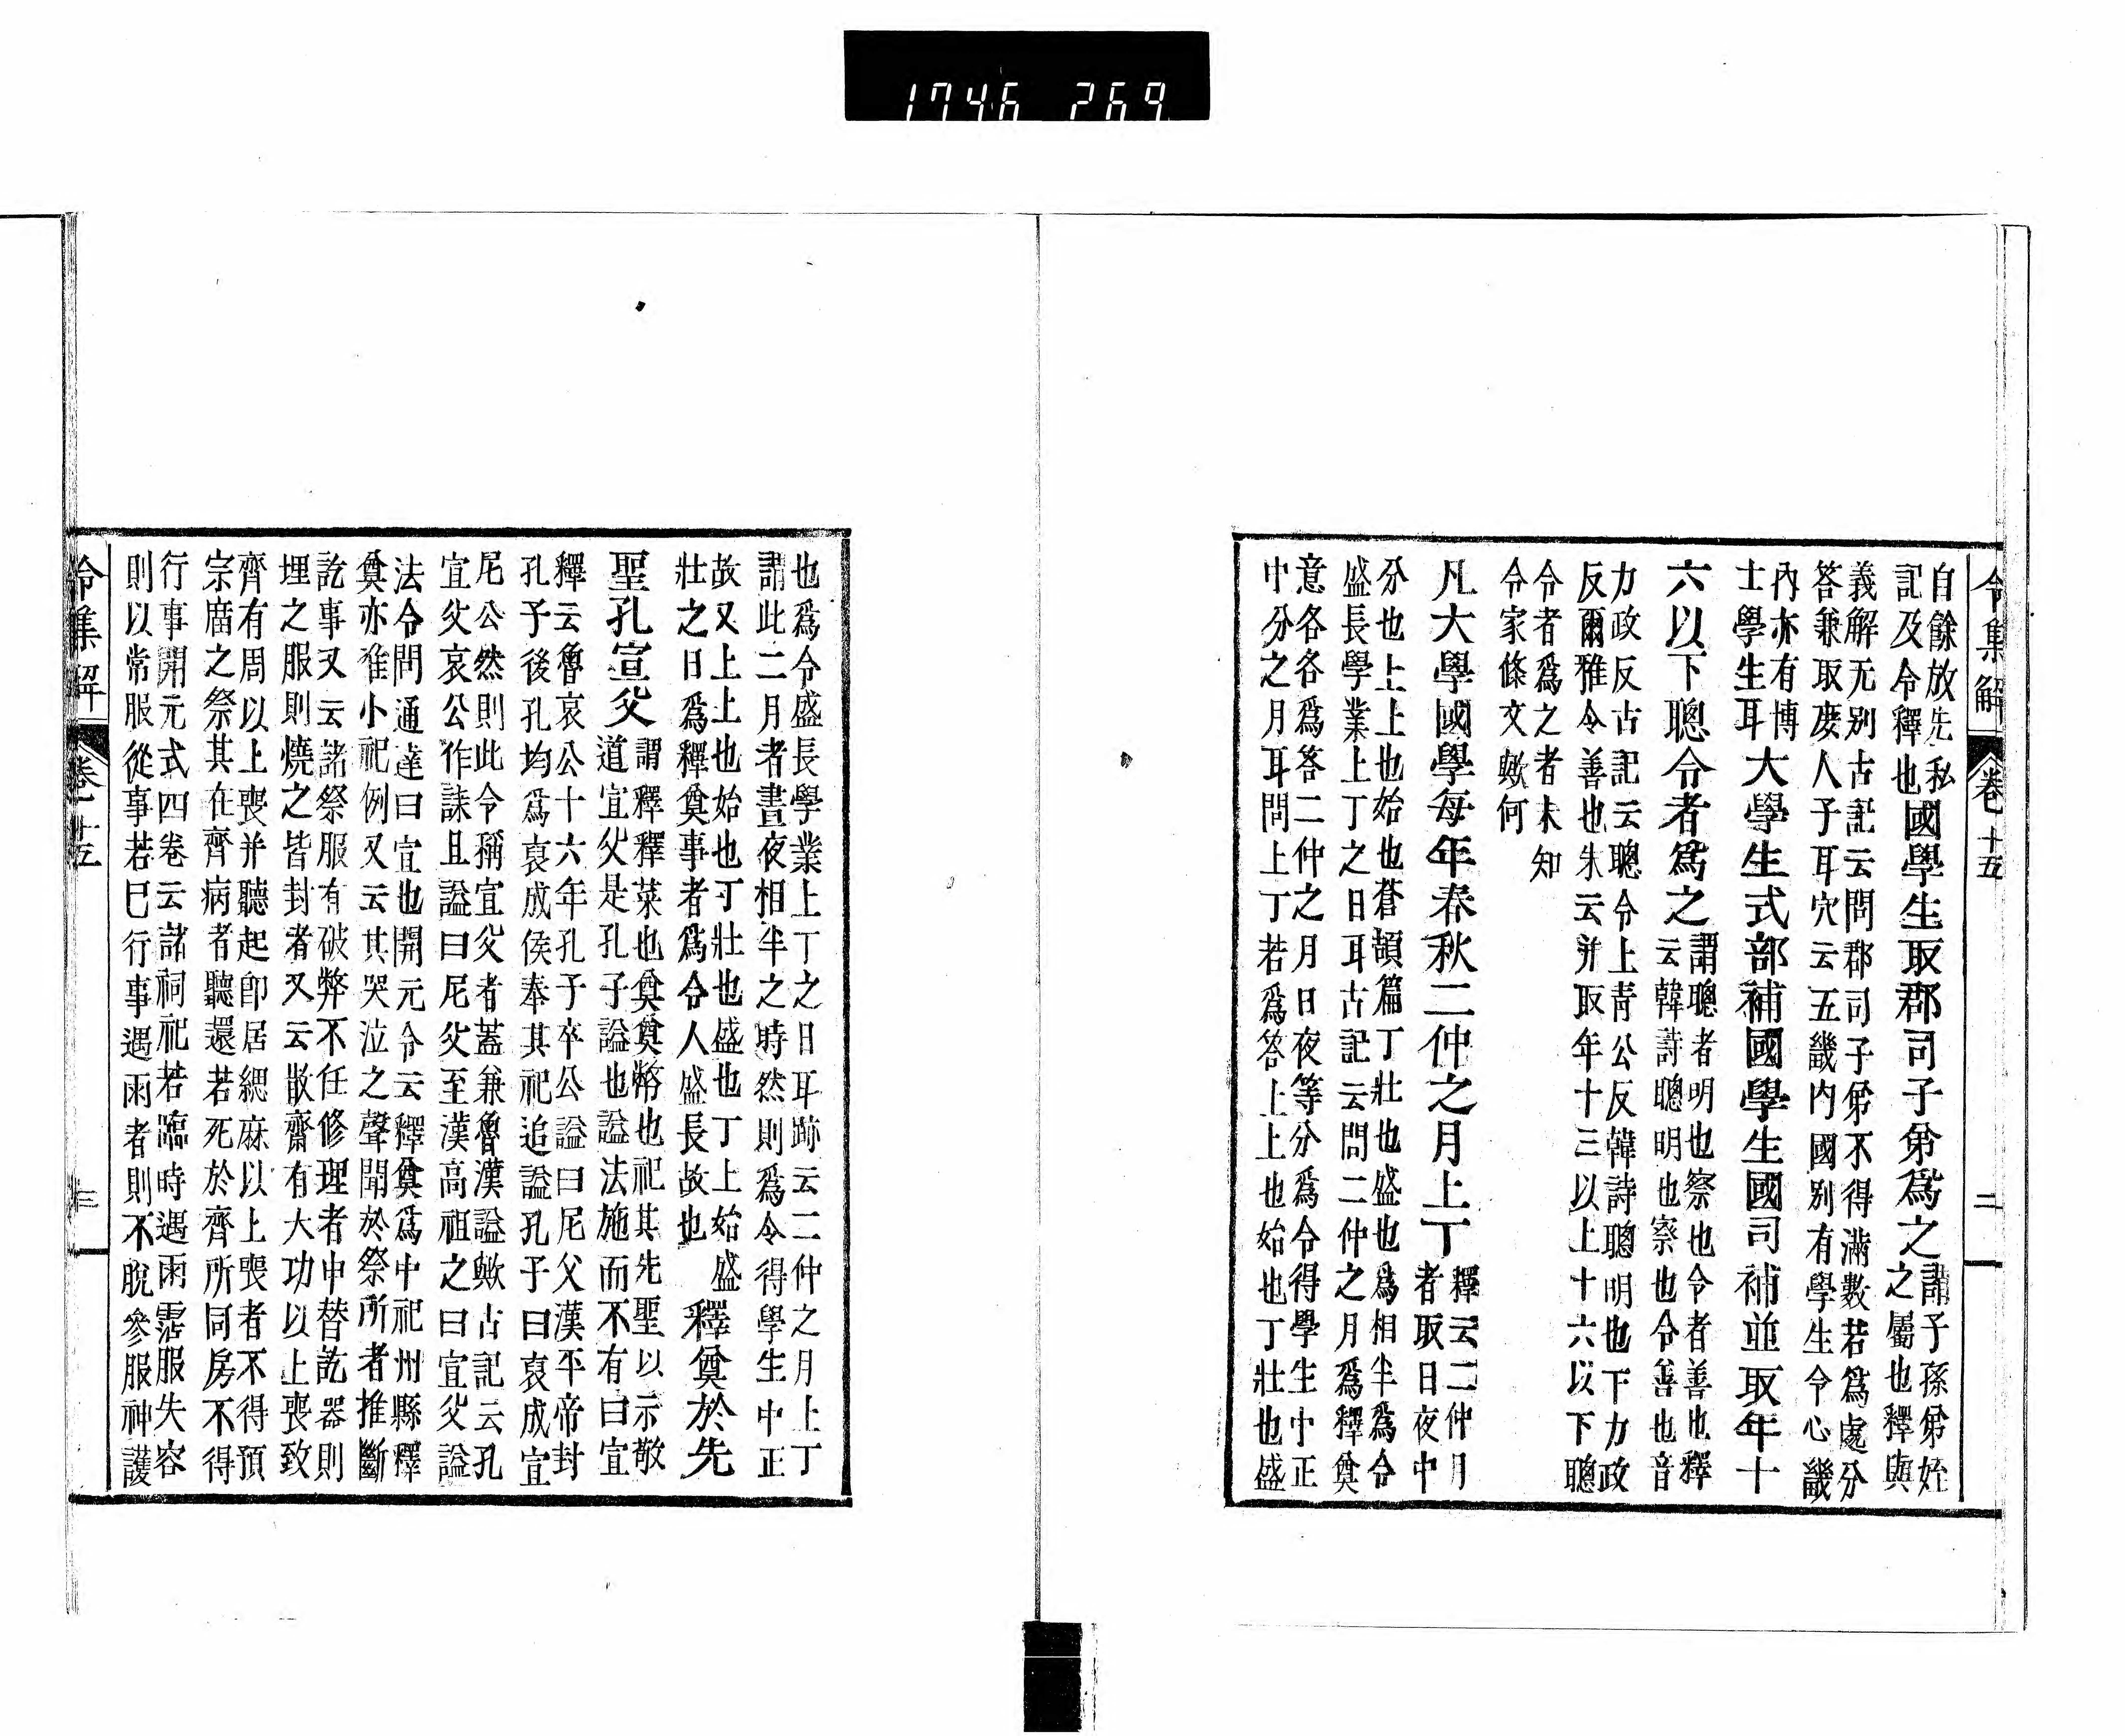 1746 269
令集解 卷十五 二
自餘放先私
記及令釋也國學生取郡司子弟爲之謂子孫弟姪
之屬也釋與
義解无別古記云問郡司子弟不得滿數若爲處分
答兼取庶人子耳穴云五畿内國別有學生令心畿
內亦有博
士學生耳大學生式部補國學生國司補並取年十
六以下聰令者爲之謂聰者明也察也令者善也釋
云韓詩聰明也察也令善也音
力政反古記云聰令上青公反韓詩聰明也下力政
反爾雅令善也朱云并取年十三以上十六以下聰
令者爲之者未知
令家條文歟何
凡大學國學每年春秋二仲之月上丁釋云二仲月
者取日夜中
分也上上上也始也蒼頡篇丁壯也盛也爲相半爲令
盛長學業上丁之日耳古記云問二仲之月爲釋奠
意各各爲答二仲之月日夜等分爲令得學生中正
中分之月耳問上丁若爲答上上也始也丁壯也盛
也爲令盛長學業上丁之日耳跡云二仲之月上丁
謂此二月者晝夜相半之時然則爲令得學生中正
故又上上也始也丁壯也盛也丁上始盛
壯之日爲釋奠事者爲令人盛長故也釋奠於先
聖孔宣父謂釋釋菜也奠奠幣也祀其先聖以示敬
道宣父是孔子謚也謚法施而不有曰宣
釋云魯哀公十六年孔子卒公謚曰尼父漢平帝封
孔子後孔均爲褒成侯奉其祀追謚孔子曰褒成宣
尼公然則此令稱宣父者蓋兼魯漢謚歟古記云孔
宣父哀公作誄且謚曰尼父至漢高祖之曰宣父謚
法令問通達曰宣也開元令云釋奠爲中祀州縣釋
奠亦准小祀例又云其哭泣之聲聞於祭所者推斷
訖事又云諸祭服有破弊不任修理者申替訖器則
埋之服則燒之皆封者又云散齋有大功以上喪致
齊有周以上喪并聽起卽居緦麻以上喪者不得預
宗廣之祭其在齊病者聽還若死於齊所同房不得
行事開元式四卷云諸祠祀若臨時遇雨霑服失容
則以常服從事若巳行事遇雨者則不脫參服神護
令集解 卷十五 三